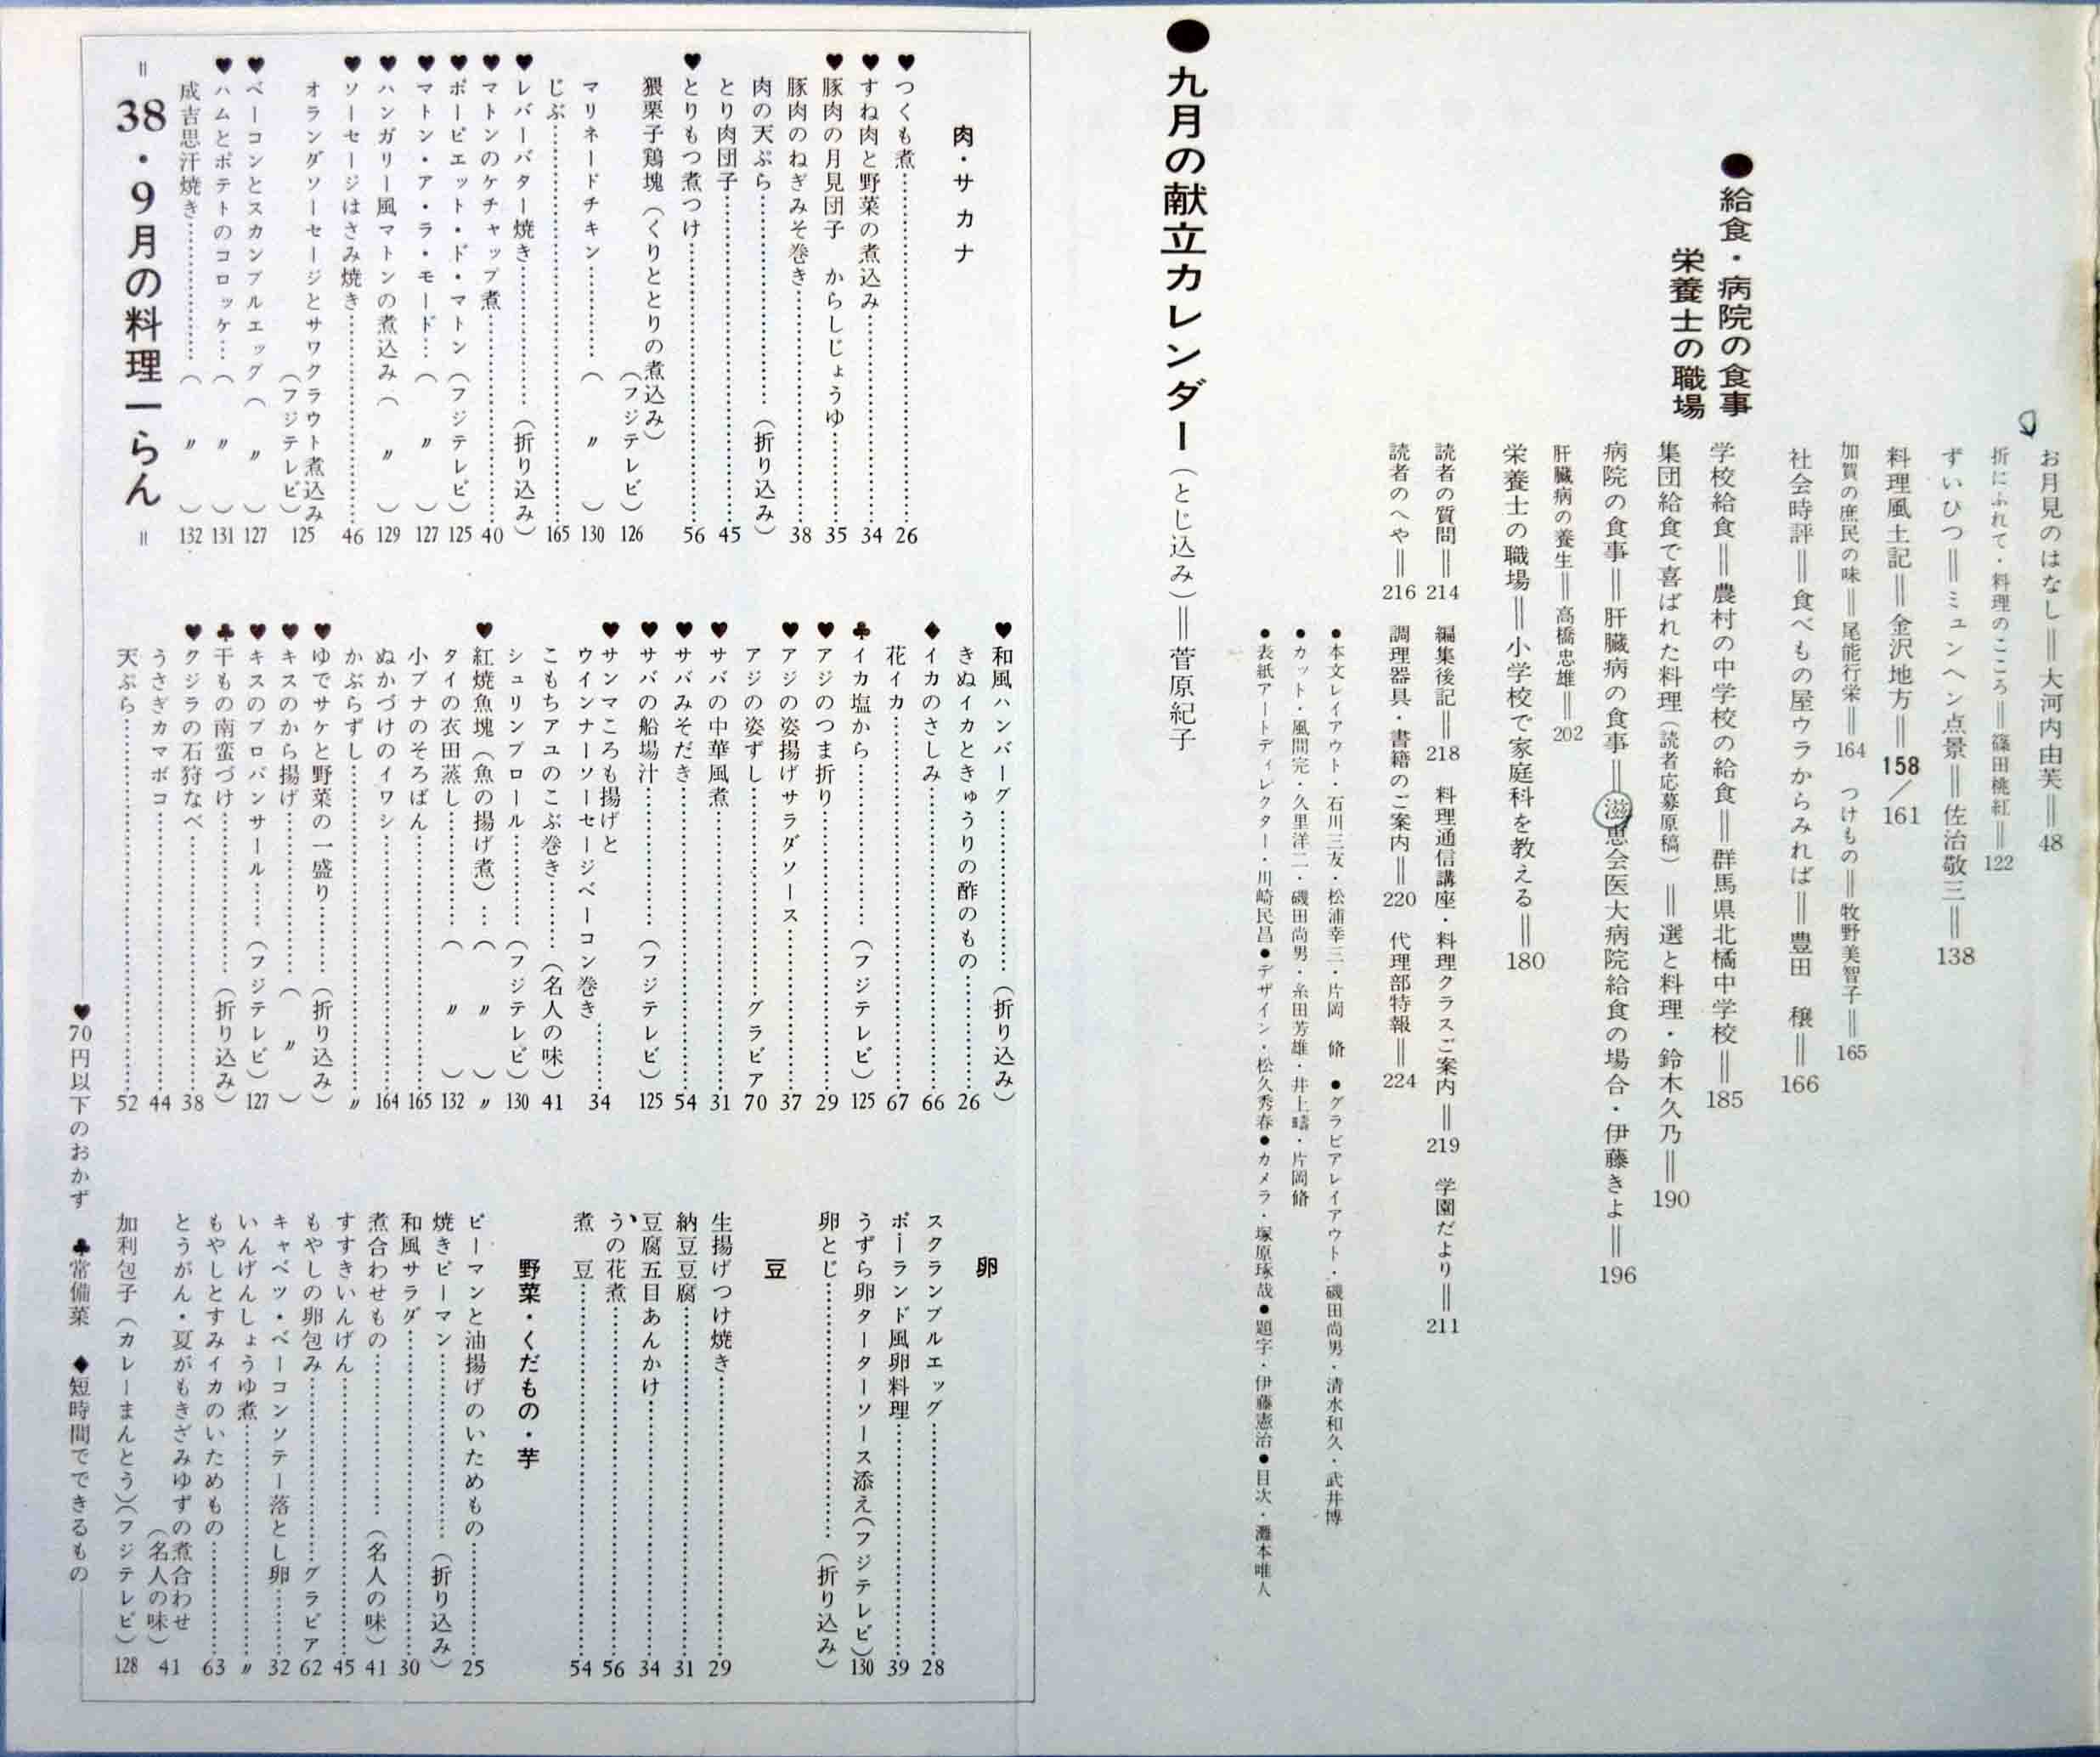 お月見のはなし＝大河内由芙＝48
折にふれて・料理のこころ＝篠田桃紅＝122
ずいひつ＝ミュンヘン点景＝佐治敬三＝138
料理風土記＝金沢地方＝158／161
加賀の庶民の味＝尾能行栄＝164　つけもの＝牧野美智子＝165
社会時評＝食べもの屋ウラからみれば＝豊田　穣＝166
●給食・病院の食事
栄養士の職場
学校給食＝農村の中学校の給食＝群馬県北橘中学校＝185
集団給食で喜ばれた料理（読者応募原稿）＝選と料理・鈴木久乃＝190
病院の食事＝肝臓病の食事＝滋恵会医大病院給食の場合・伊藤きよ＝196
肝臓病の養生＝高橋忠雄＝202
栄養士の職場＝小学校で家庭科を教える＝180
読者の質問＝214　編集後記＝218　料理通信講座・料理クラスご案内＝219　学園だより＝211
読者のへや＝216　調理器具・書籍のご案内＝220　代理部特報＝224
●本文レイアウト・石川三友・松浦幸三・片岡　脩　●グラビアレイアウト・磯田尚男・清水和久・武井博
●カット・風間完・久里洋二・磯田尚男・糸田芳雄・井上疇・片岡脩
●表紙アートディレクター・川崎民昌●デザイン・松久秀春●カメラ・塚原琢哉●題字・伊藤憲治●目次・灘本唯人
●九月の献立カレンダー（とじ込み）＝菅原紀子
肉・サカナ
♥つくも煮……26
♥すね肉と野菜の煮込み……34
♥豚肉の月見団子　からしじょうゆ……35
豚肉のねぎみそ巻き……38
肉の天ぷら……（折り込み）
とり肉団子……45
♥とりもつ煮つけ……56
猥栗子鶏塊（くりととりの煮込み）
（フジテレビ）126
マリネードチキン……（　〃　）130
じぶ……165
♥レバーバター焼き……（折り込み）
♥マトンのケチャップ煮……40
♥ポーピエット・ド・マトン（フジテレビ）125
♥マトン・ア・ラ・モード…（　〃　）127
♥ハンガリー風マトンの煮込み（　〃　）129
♥ソーセージはさみ焼き……46
オランダソーセージとサワクラウト煮込み
（フジテレビ）125
♥ベーコンとスカンブルエッグ（　〃　）127
♥ハムとポテトのコロッケ…（　〃　）131
成吉思汗焼き……（　〃　）132
＝38・9月の料理一らん＝
♥和風ハンバーグ……（折り込み）
きぬイカときゅうりの酢のもの……26
♦イカのさしみ……66
花イカ……67
♣イカ塩から……（フジテレビ）125
♥アジのつま折り……29
♥アジの姿揚げサラダソース……37
アジの姿ずし……グラビア70
♥サバの中華風煮……31
♥サバみそだき……54
♥サバの船場汁……（フジテレビ）125
♥サンマころも揚げと
ウインナーソーセージベーコン巻き……34
こもちアユのこぶ巻き……（名人の味）41
シュリンプロール……（フジテレビ）130
♥紅焼魚塊（魚の揚げ煮）…（　〃　）〃
タイの衣田蒸し……（　〃　）132
小ブナのそろばん……165
ぬかづけのイワシ……164
かぶらずし……〃
♥ゆでサケと野菜の一盛り……（折り込み）
♥キスのから揚げ……（　〃　）
♥キスのプロバンサール……（フジテレビ）127
♣干もの南蛮づけ……（折り込み）
♥クジラの石狩なべ……38
うさぎカマボコ……44
天ぷら……52
卵
スクランブルエッグ……28
ポーランド風卵料理……39
うずら卵ターターソース添え（フジテレビ）130
卵とじ……（折り込み）
豆
生揚げつけ焼き……29
納豆豆腐……31
豆腐五目あんかけ……34
うの花煮……56
煮　豆……54
野菜・くだもの・芋
ピーマンと油揚げのいためもの……25
焼きピーマン……（折り込み）
和風サラダ……30
煮合わせもの……（名人の味）41
すすきいんげん……45
もやしの卵包み……グラビア62
キャベツ・ベーコンソテー落とし卵……32
いんげんしょうゆ煮……〃
もやしとすみイカのいためもの……63
とうがん・夏がもきざみゆずの煮合わせ
（名人の味）41
加利包子（カレーまんとう）（フジテレビ）128
♥70円以下のおかず　♣常備菜　♦短時間でできるもの